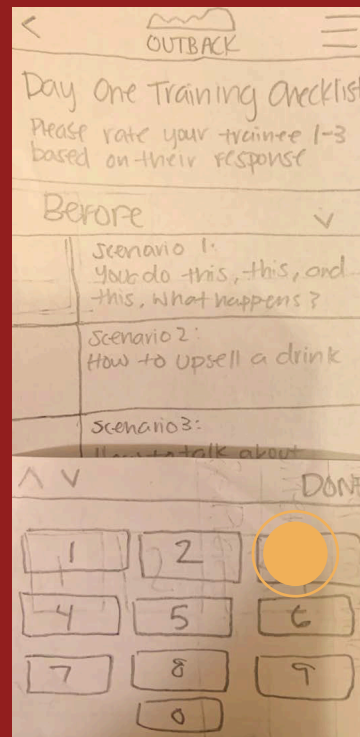 <
OUTBACK
Day One Training Checklist
Please rate your trainee 1-3
based on their response
Before
scenario 1:
You do this, this, and
this, what happens?
scenario 2:
How to upsell a drink
scenario 3:
talk about
DONE
1 2
4 5 6
7 8 9
0